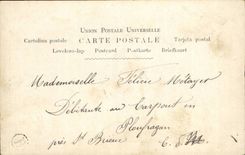 UNION POSTALE UNIVERSELLE
CARTE POSTALE
Cartolina postale Tarjeta postal
Levelező-lap Postcard Postkarte Briefkaart
Mademoiselle Félicie Métayer
Débitante au en
Ploufragan
près St Brieuc C.